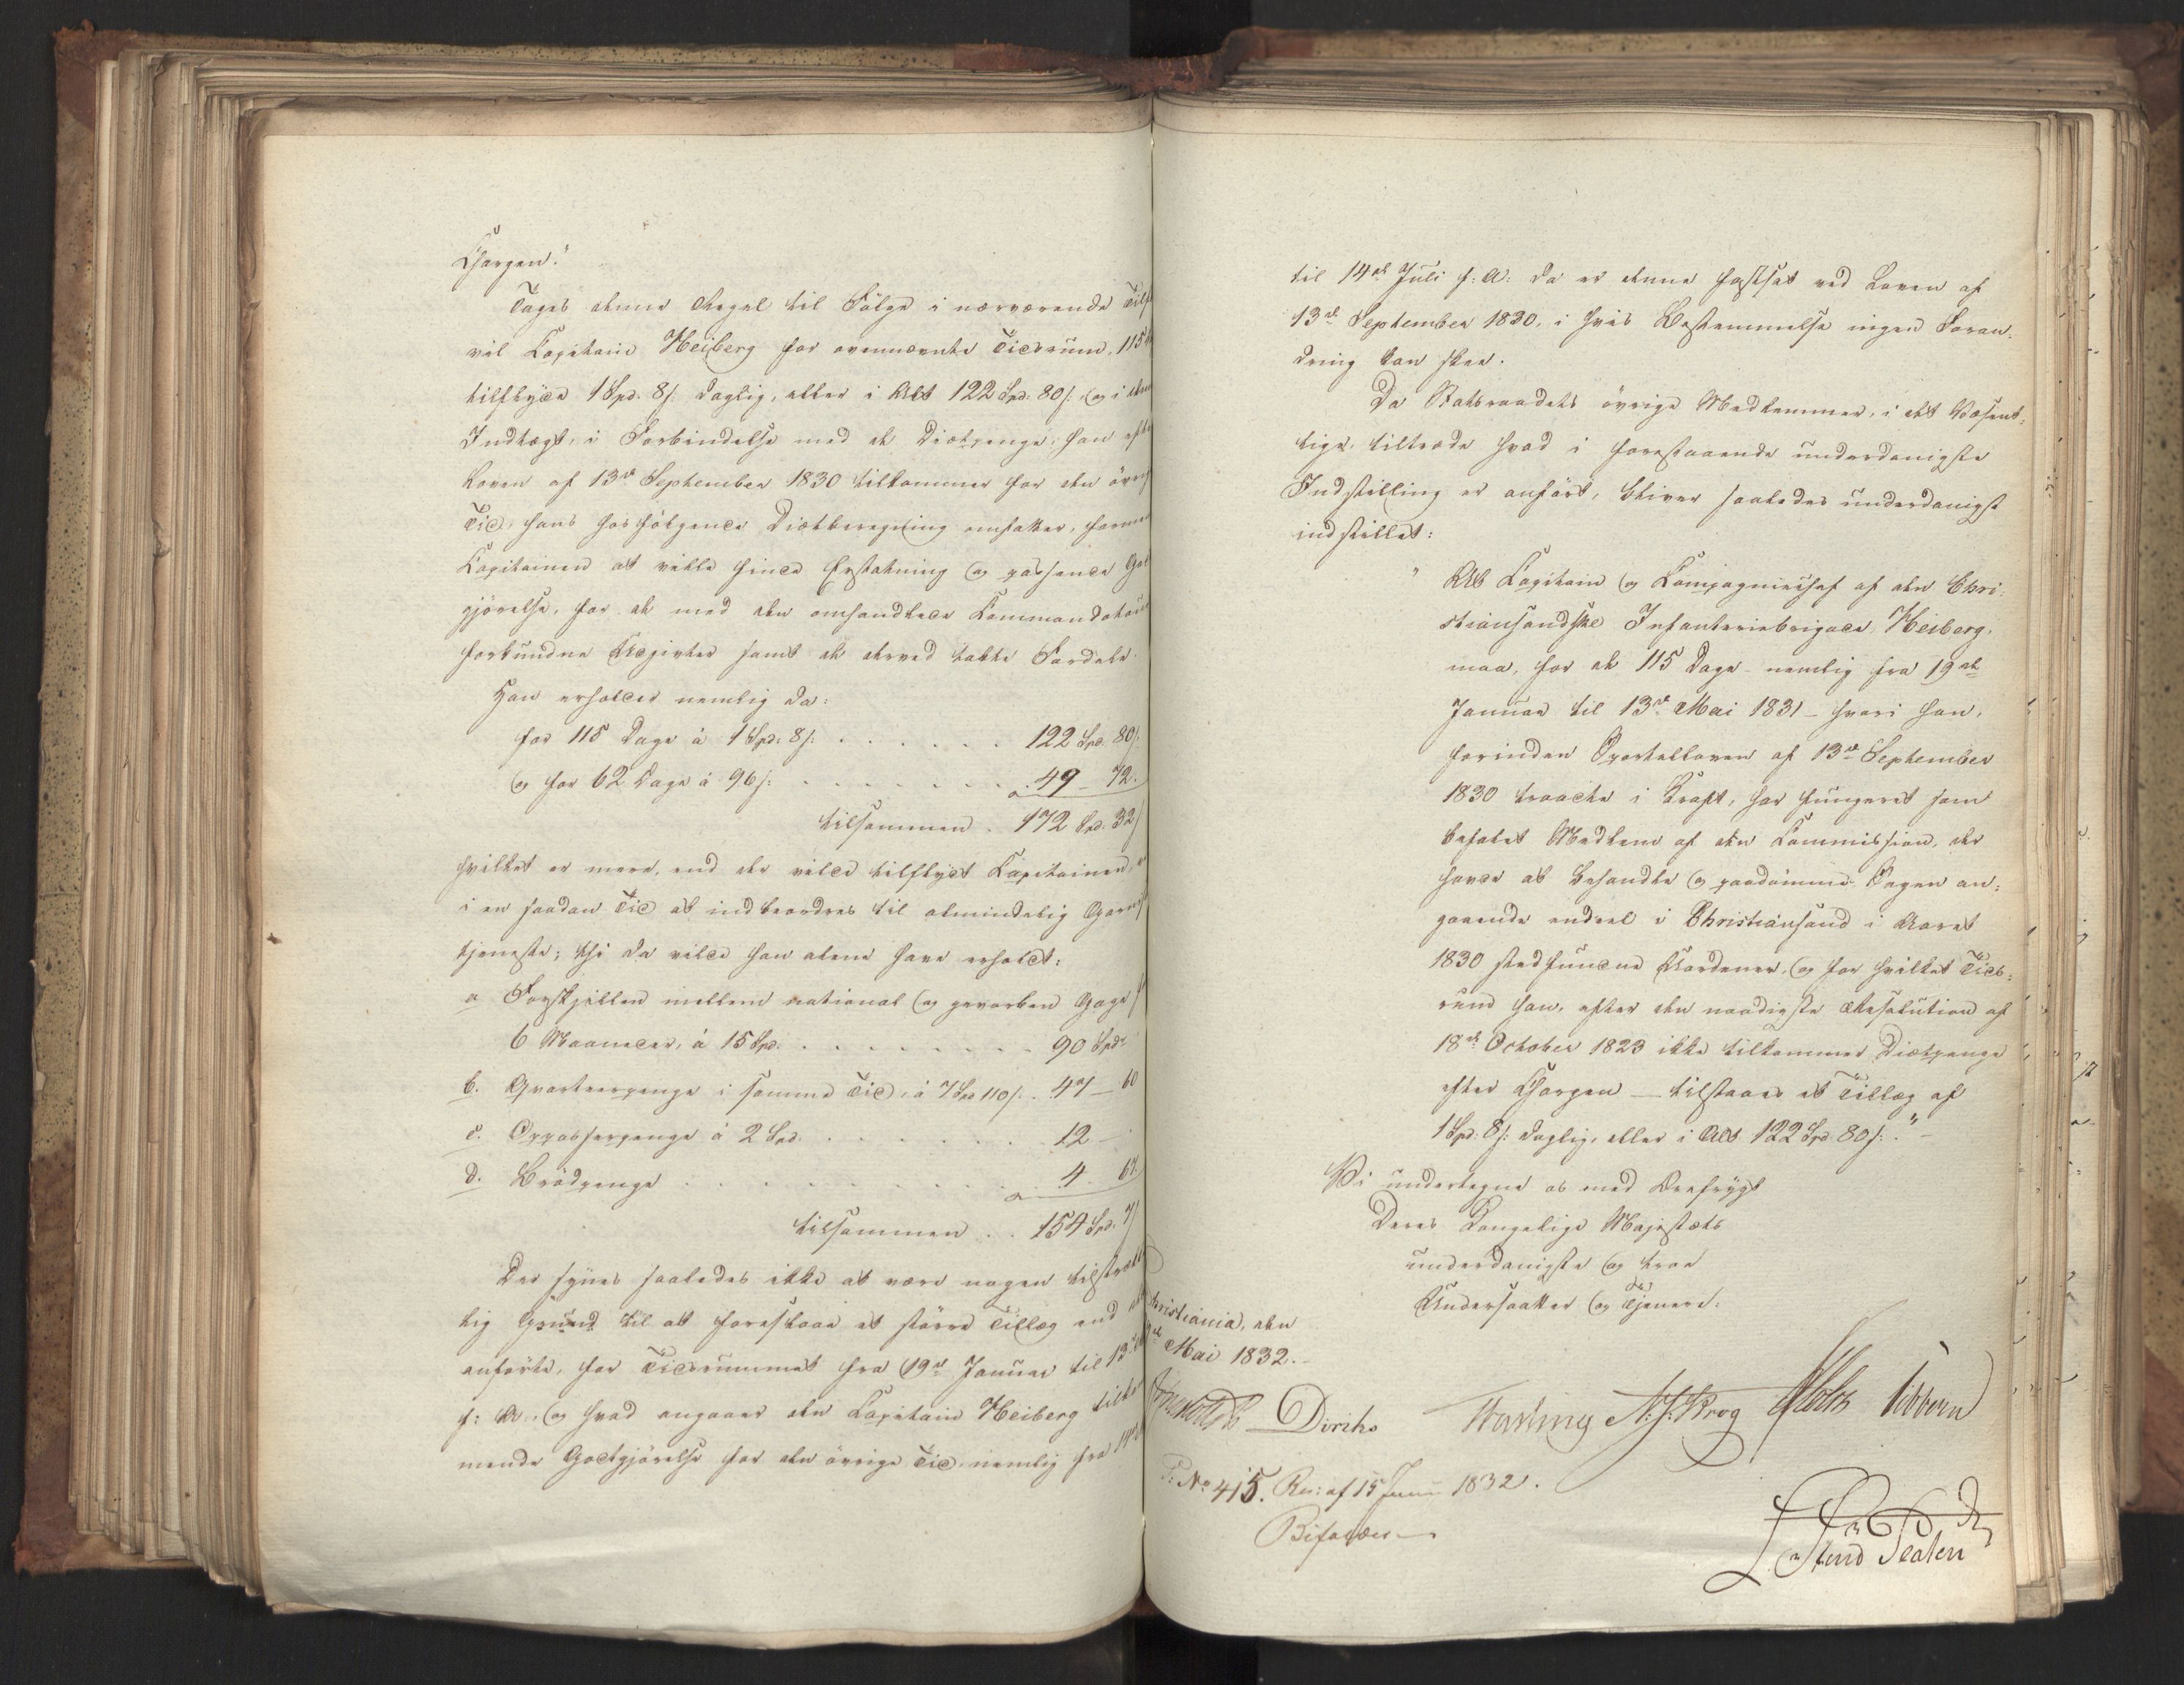 Chargen."
Tages denne Regel til Følge i nærværende Tilf
vil Capitain Heiberg for ovennævnte Tidsrum, 115
tilflyde 1 Spd. 8 s. daglig, eller i Alt 122 Spd. 80 s., og i den
Indtægt, i Forbindelse med de Diætpenge, han efter
Loven af 13de September 1830 tilkommer for den øvrige
Tid, hans hosfølgende Diætberegning omfatter, formeen
Capitainen at ville finde Erstatning og passende God
gjørelse, for de med den omhandlede Commandotour
forbundne Udgivter samt de derved tabte Fordele.
Han erholder nemlig da:
for 115 Dage à 1 Spd. 8 s. . . . . . . 122 Spd. 80 s.
og for 62 Dage à 96 s. . . . . . . . 49 - 72.
tilsammen . 172 Spd. 32 s
hvilket er mere, end der vilde tilflydt Capitainen,
i en saadan Tid at indbeordres til almindelig Garnis
tjeneste; thi da vilde han alene have erholdt:
a Forskjellen mellem national og gevorben Gage f
6 Maaneder, à 15 Spd. . . . . . . . . 90 Spd.
b. Qvarteerpenge i samme Tid, à 7 Spd 110 s. . 47 - 60
c. Oppasserpenge à 2 Spd. . . . . . . . 12 -
d. Brødpenge . . . . . . . . . 4. 67.
tilsammen . . 154 Spd. 7 s
Der synes saaledes ikke at være nogen tilstræk
lig Grund til at foreslaae et større Tillæg end det
anførte, for Tidsrummet fra 19de Januar til 13de
f: A., og hvad angaaer den Capitain Heiberg tilkom
mende Godtgjørelse for den øvrige Tid, nemlig fra 14de
til 14de Juli f: A: da er denne fastsat ved Loven af
13de September 1830, i hvis Bestemmelse ingen Foran-
dring kan skee.
Da Statsraadets øvrige Medlemmer, i det Væsent-
lige, tiltræde hvad i forestaaende underdanigste
Indstilling er anført, bliver saaledes underdanigst
indstillet:
" At Capitain og Compagniechef af den Chri-
stiansandske Infanteriebrigade, Heiberg,
maa, for de 115 Dage - nemlig fra 19de
Januar til 13de Mai 1831 - hvori han,
forinden Sportelloven af 13de September
1830 traadte i Kraft, har fungeret som
befalet Medlem af den Commission, der
havde at behandle og paadømme Sagen an-
gaaende endeel i Christiansand i Aaret
1830 stedfundne Uordener, og for hvilket Tids-
rum han, efter den naadigste Resolution af
18de October 1823 ikke tilkommer Diætpenge
efter Chargen — tilstaaes et Tillæg af
1 Spd. 8 s. daglig, eller i Alt 122 Spd. 80 s.." -
Vi undertegne os med Ærefrygt
Deres Kongelige Majestæts
underdanigste og troe
Undersaatter og Tjenere.
hristiania, den
Mai 1832.-
Diriks N: J: Krog Holst Vibbern
P: No 415. Res: af 15 Juni 1832.
Bifaldes